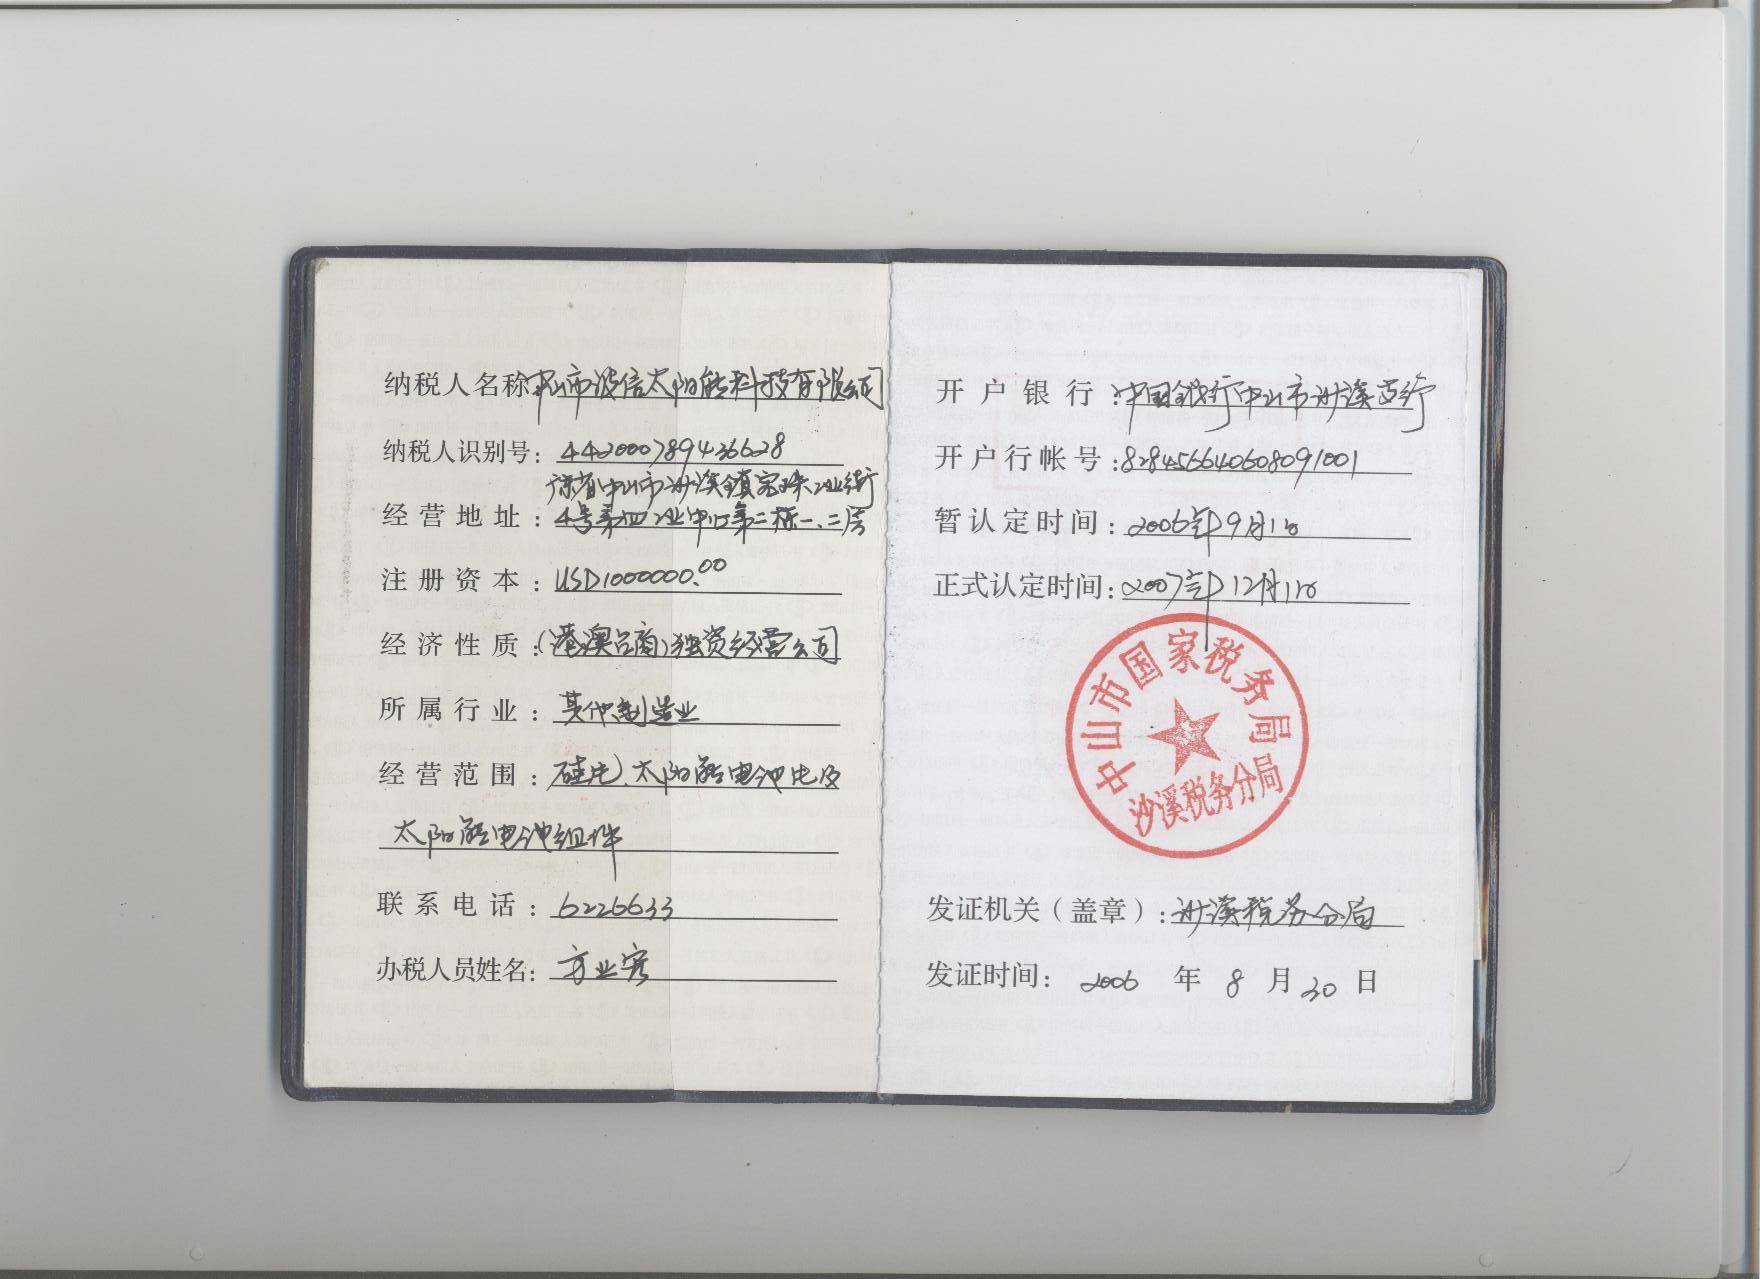 纳税人名称:中山市波信太阳能科技有限公司
纳税人识别号: 442000789436628
广东省中山市沙溪镇宝珠工业街
经营地址: 4号第四工业中心第二栋一、二层
注册资本: USD1000000.00
经济性质: (港澳台商)独资经营公司
所属行业: 其他制造业
经营范围: 硅片、太阳能电池片及
太阳能电池组件
联系电话: 6226633
办税人员姓名: 方业
开户银行: 中国银行中山市沙溪支行
开户行帐号: 828456640608091001
暂认定时间: 2006年9月1日
正式认定时间: 2007年12月1日
中山市国家税务局
沙溪税务分局
发证机关(盖章): 沙溪税务分局
发证时间: 2006 年 8 月 30 日